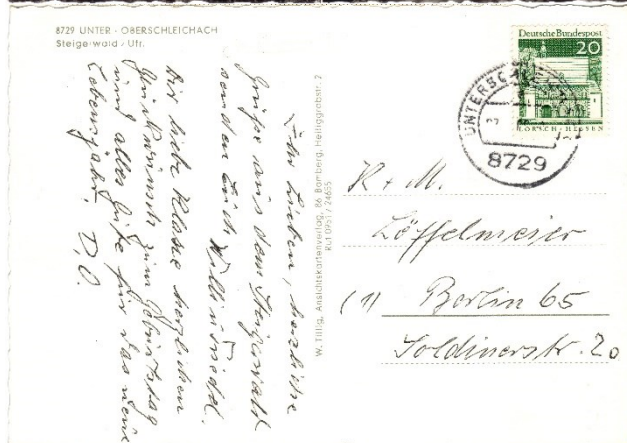 8729 UNTER - OBERSCHLEICHACH
Steigerwald / Ufr.
Ihr Lieben, herzliche
Grüße aus dem Steigerwald
senden Euch
Dir liebe herzlichen
Glückwunsch zum Geburtstag
und alles Gute für das neue
Lebensjahr. D.O.
W. Tillig, Ansichtskartenverlag, 86 Bamberg, Heiliggrabstr. 2
Ruf 0951 / 24655
Deutsche Bundespost
20
LORSCH - HESSEN
8729
K + M.
Löffelmeier
(1) Berlin 65
Soldinerstr. 20